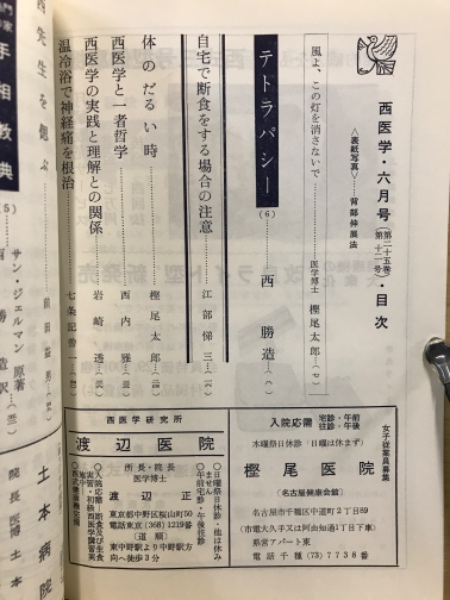 西医学・六月号(第二十五巻 第十二号)・目次
＜表紙写真＞……背部伸展法
風よ、この灯を消さないで……医学博士 樫尾太郎…(七)
テトラパシー……(6)……西 勝造…(八)
自宅で断食をする場合の注意……江部悌三…(一六)
体のだるい時……樫尾太郎…
西医学と一者哲学……西内雅…
西医学の実践と理解との関係……岩崎透…
温冷浴で神経痛を根治……七条記常…
西先生を偲ぶ
手相教典
(5)
サン・ジェルマン 原著
西勝造 訳…
女子従業員募集
入院応需 宅診・午前 往診・午後
木曜祭日休診「日曜は休まず」
樫尾医院
〔名古屋健康会館〕
名古屋市千種区中道町２丁目８９
(市電大久手又は阿由知通1丁目下車)
県営アパート東
電話千種(73)7738番
西医学研究所
渡辺医院
所長・院長
医学博士
渡辺 正
東京都中野区桜山町50
電話東京(368)1219番
(道順)
東中野駅より中野駅方
向へ徒歩3分
○日曜祭日休診・他は休み
ません
午前宅診・午後往診
○入院応需・断食及び生食
土本病院
院長 医博 土本